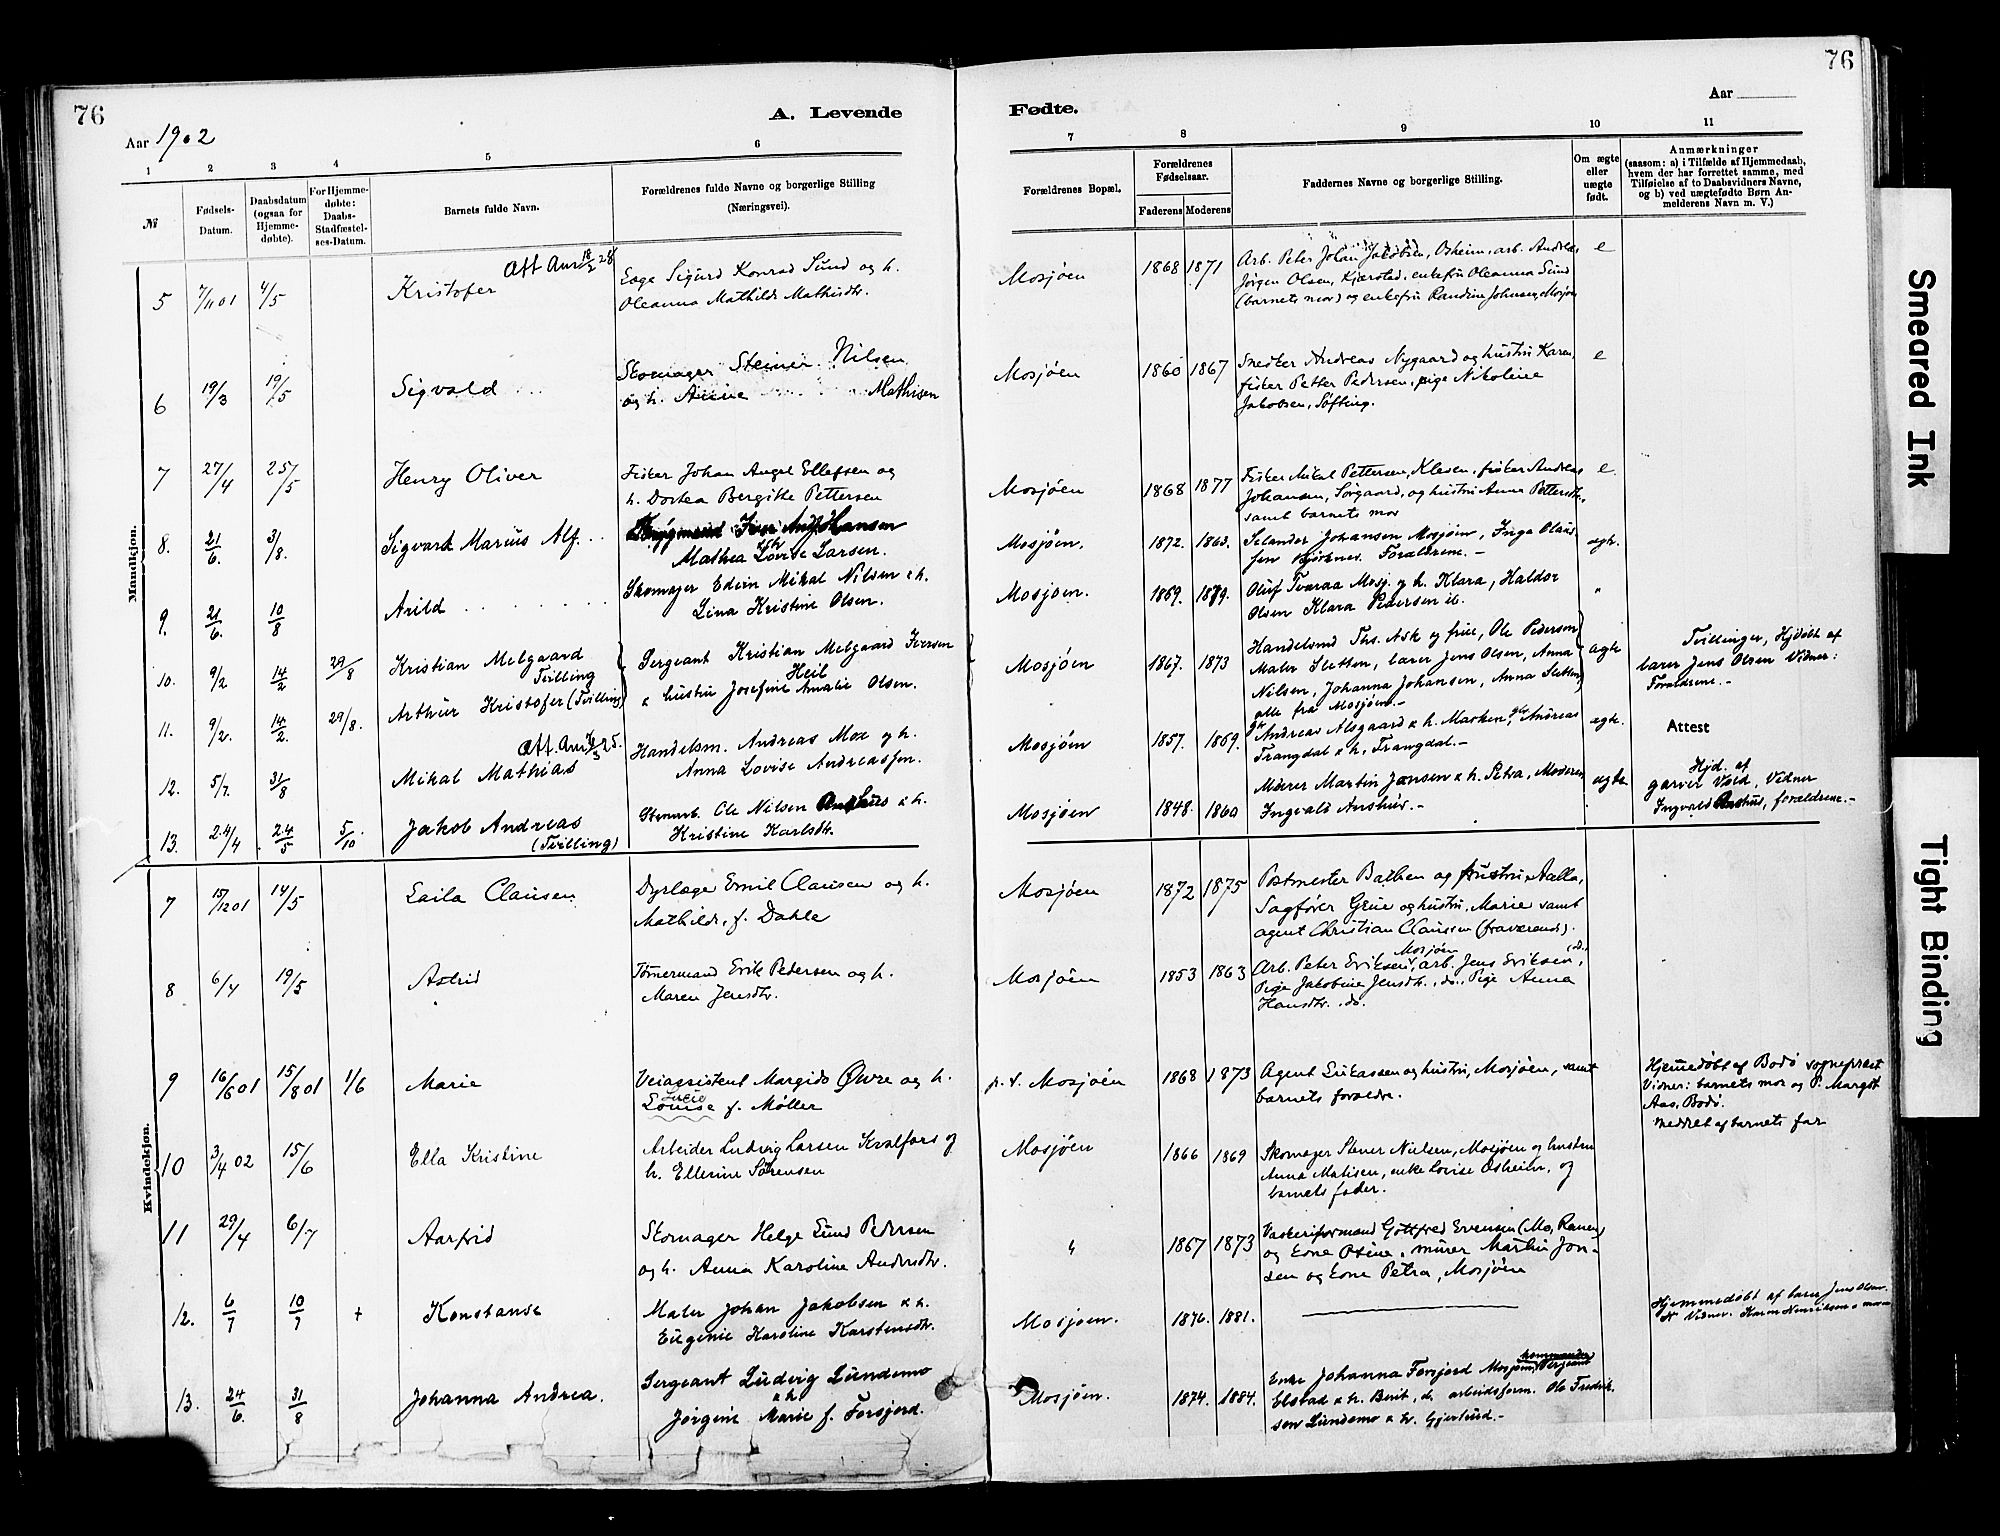 76
A. Levende
Aar 1902
1 2 3 4 5 6
№
Fødsels-Datum.
Daabsdatum (ogsaa for Hjemmedøbte).
For Hjemmedøbte: Daabs-Stadfæstelses-Datum.
Barnets fulde Navn.
Forældrenes fulde Navne og borgerlige Stilling (Næringsvei).
Fødte.
76
Aar
7 8 9 10 11
Forældrenes Bopæl.
Forældrenes Fødselsaar.
Faderens Moderens
Faddernes Navne og borgerlige Stilling.
Om ægte eller uægte født.
Anmærkninger
(saasom: a) i Tilfælde af Hjemmedaab,
hvem der har forrettet samme, med
Tilføielse af to Daabsvidners Navne,
og b) ved uægtefødte Børn Anmelderens Navn m. V.)
Mandkjøn.
5 7/11 01 4/5 Kristofer
Sigurd Konrad Lund og h.
Oleanna Mathilde Mathisdtr.
Mosjøen 1868 1871
Arb. Peter Johan Jakobsen, Osheim, arb. Andreas
Jørgen Olsen, Kjærstad, enkefru Oleanna Lund
(barnets mor) og enkefru Randine Johnsen, Mosjøen
e
6 19/3 19/5 Sigvald
Skomager Steiner Nilsen
og h. Anne Mathisen
Mosjøen 1860 1867
Snedker Andreas Nygaard og hustru Karen,
fisker Petter Pedersen, pige Nikoline
Jakobsen, Søfting.
e
7 27/4 25/5 Henry Oliver
Fisker Johan Angel Ellefsen og
h. Dortea Bergitte Pettersen
Mosjøen 1868 1877
Fisker Mikal Pettersen, Klesen, fisker Andreas
Johansen, Sørgaard, og hustru Anna Pettersdtr.,
samt barnets mor
e.
8. 21/6. 3/8. Sigvard Marius Alf
Hansen
Mathea Lovise Larsen.
Mosjöen. 1872. 1863.
Selander Johansen Mosjøen, Inga
Forældrene.
ægte.
9. 21/6. 10/8 Arild
Skomager Edvin Mikal Nilsen & h.
Lina Kristine Olsen.
Mosjøen. 1869. 1879.
Oluf Tveraa Mosj. og h. Klara, Haldor
Olsen Klara Pedersen ib.
"
10. 9/2 14/2 29/8 Kristian Melgaard
Tvilling
Sergeant Kristian Melgaard Iversen
Heil
& hustru Josefine Amalie Olsen.
Mosjøen 1867. 1873
Handelsmd Ths. Ask og frue, Ole Pedersen
Maler Sletten, lærer Jens Olsen, Anna
Nilsen, Johanna Johansen, Anna Sletten,
alle fra Mosjøen.
ægte
Tvillinger, Hjdøbt af
lærer Jens Olsen Vidner:
Forældrene.
11. 9/2. 14/2. 29/8. Arthur Kristofer (Tvilling)
12. 5/7. 31/8 Mikal Mathias
Handelsm. Andreas Moe og h.
Anna Lovise Andreassen.
Mosjøen 1857. 1869.
Andreas Alsgaard & h. Marken, Andreas
Trangdal & h. Trangdal.
ægte.
Attest
13. 24/4 24/5 5/10 Jakob Andreas
(Tvilling)
Stenarb. Ole Nilsen & h.
Kristine Karlsdtr.
Mosjøen 1848. 1860
Murer Martin Jansen & h. Petra, Moderen
Ingvald Anshus.
ægte
Hjd. af
garver Vold, Vidner
Ingvald Anshus, forældrene.
Kvindekjøn.
7 15/12 01 14/5 Laila Clausen
Dyrlæge Emil Clausen og h.
Mathilde, f. Dahle
Mosjøen 1872 1875
Postmester Bathen og hustru Aalla,
Sagfører Grue og hustru, Marie samt
agent Christian Claussen (fraværende).
8 6/4 19/5 Astrid
Tømermand Erik Pedersen og h.
Maren Jensdtr.
Mosjøen 1853 1863
Arb. Peter Eriksen, Mosjøen, arb. Jens Eriksen, do.,
Pige Jakobine Jensdtr., do., Pige Anna
Hansdtr., do.
9 16/6 01 15/8 01 1/6 Marie
Veiassistent Margido Øvre og h.
Louise f. Møller
p. t. Mosjøen 1868 1873
Agent Lukassen og hustru, Mosjøen, samt
barnets forældre.
Hjemmedøbt af Bodø sogneprest
Vidner: barnets mor og P. Margot
Aas, Bodø.
meddelt af barnets far
10 3/4 02 15/6 Ella Kristine
Arbeider Ludvig Larsen Kvalfors og
h. Ellerine Sørensen
Mosjøen 1866 1869
Skomager Stener Nielsen, Mosjøen og hustru
Anna Matisen, enke Lovise Osheim, og
barnets fader.
11 29/4 6/7 Aarfrid
Skomager Helge Lund Pedersen
og h. Anna Karoline Andersdtr.
" 1867 1873
Vaskeriformand Gottfred Evensen (Mo, Ranen)
og kone Osine, murer Martin Jonsen og kone Petra, Mosjøen
12. 6/7 10/7 + Konstanse
Maler Johan Jakobsen & h.
Eugenie Karoline Karstensdtr.
Mosjøen. 1876. 1881.
Hjemmedøbt af lærer Jens Olsen.
Vidner. Karen Henriksen & moren
13. 24/6. 31/8 Johanna Andrea.
Sergeant Ludvig Lundemo
& h.
Jørgine Marie f. Forsjord.
Mosjøen. 1874. 1884.
Enke Johanna Forsjord Mosjøen, Sergeant
Elstad & h. Berit, do. arbeidsform. Ole Fredriksen Lundemo & h. Gjertrud.
Smeared Ink
Tight Binding